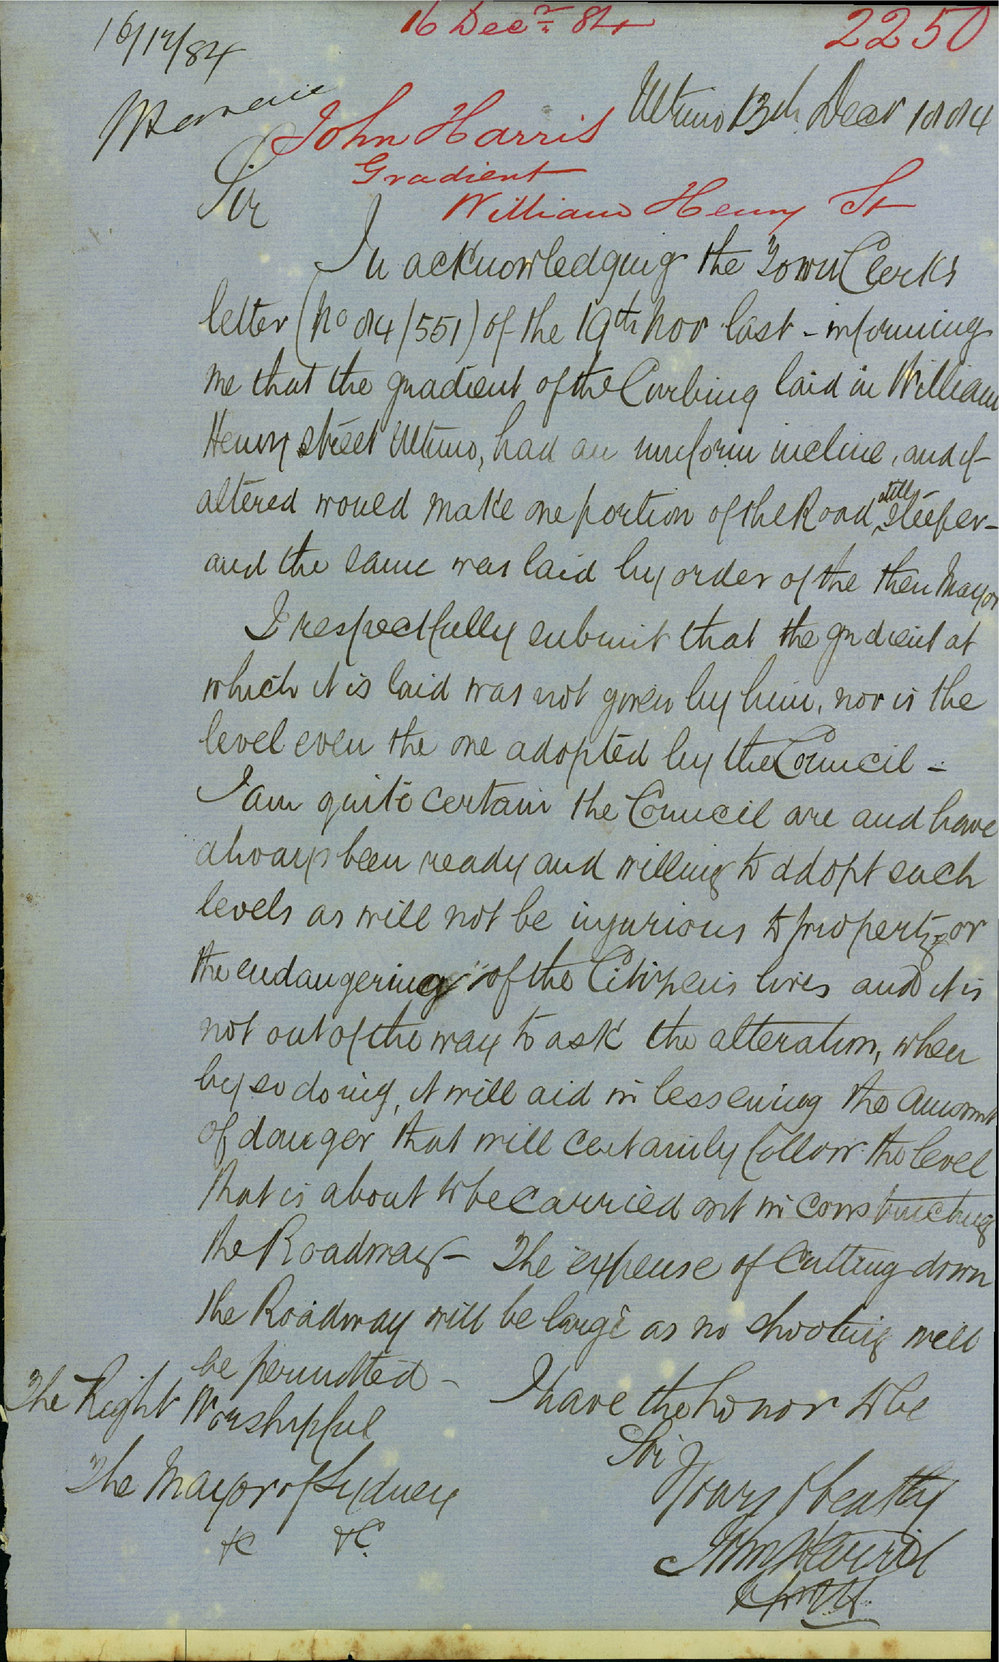 16/12/84
16 Decr 84
2250
Ultimo 13th Decr 1884
John Harris
Gradient
William Henry St
Sir
In acknowledging the Town Clerks
letter (No 84/551) of the 19th Nov last - informing
me that the gradient of the Curbing laid in William
Henry street Ultimo, had an uniform incline, and if
altered would make one portion of the Road still steeper -
and the same was laid by order of the then Mayor
I respectfully submit that the gradient at
which it is laid was not given by him, nor is the
level even the one adopted by the Council -
I am quite certain the Council are and have
always been ready and willing to adopt such
levels as will not be injurious to property or
the endangering of the Citizens lives and it is
not out of the way to ask the alteration, when
by so doing, it will aid in lessening the amount
of danger that will certainly follow the level
that is about to be carried out in constructing
the Roadway - The expense of Cutting down
the Roadway will be large as no shooting will
be permitted -
I have the honor to be
Sir
Yours
John Harris
The Right Worshipful
The Mayor of Sydney
&c &c